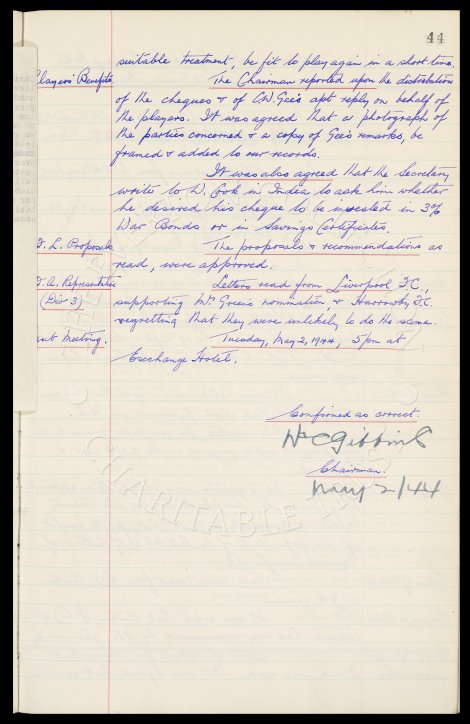 44
suitable treatment, be fit to play again in a short time.
Players' Benefits
The Chairman reported upon the distribution
of the cheques & of C.W. Gee's apt reply on behalf of
the players. It was agreed that a photograph of
the parties concerned & a copy of Gee's remarks, be
framed & added to our records.
It was also agreed that the Secretary
write to W. Cook in India to ask him whether
he desired his cheque to be invested in 3%
War Bonds or in Savings Certificates.
F. L. Proposals
The proposals & recommendations as
read, were approved.
F. A. Representative
(Div 3)
Letters read from Liverpool F.C.,
supporting Mr Green's nomination, & F.C.
regretting that they were unlikely to do the same.
Next Meeting.
Tuesday, May 2, 1944, 5pm at
Exchange Hotel.
Confirmed as correct.
WCGibbins
Chairman.
May 2/44
CHARITABLE